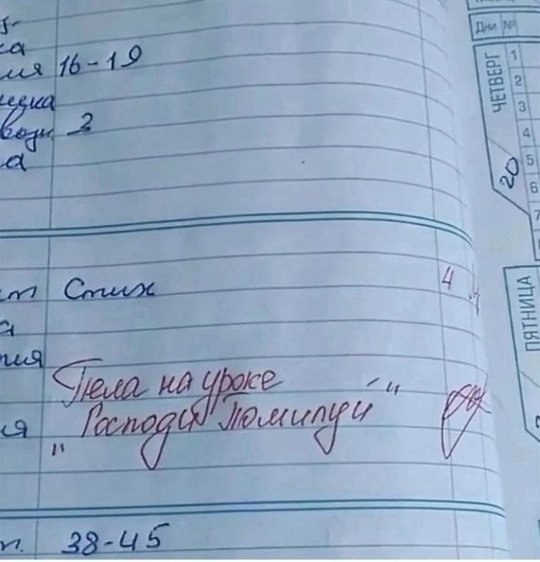 ка
ия 16-19
3
а
Стих 4
а
ия
Пела на уроке
ия "Господи Помилуй"
38-45
Дни №
ЧЕТВЕРГ
20
1
2
3
4
5
6
7
ПЯТНИЦА